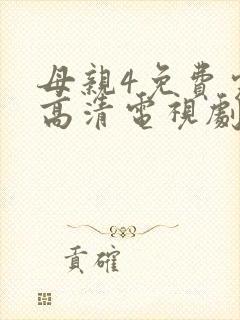 母親4免費
高清電視劇
貢確